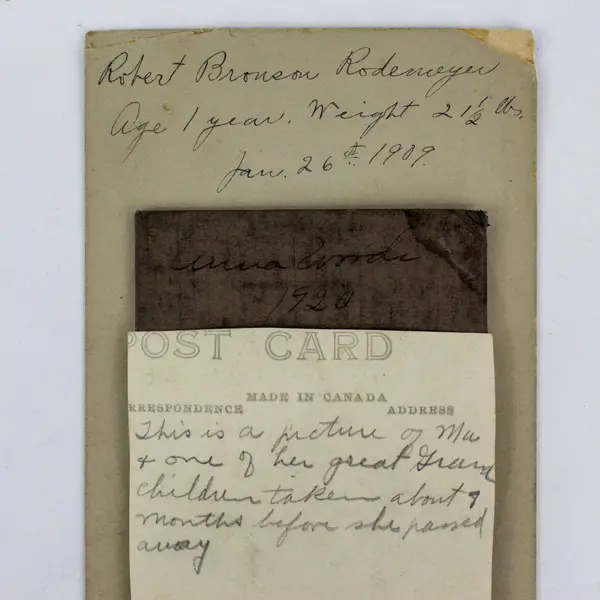 Robert Bronson Rodemeyer
Age 1 year. Weight 21 1/2 lbs.
Jan. 26th 1909.
Anna Woods
192
POST CARD
MADE IN CANADA
RRESPONDENCE ADDRESS
This is a picture of Ma
& one of her great Gran
children taken about 9
months before she passed
away